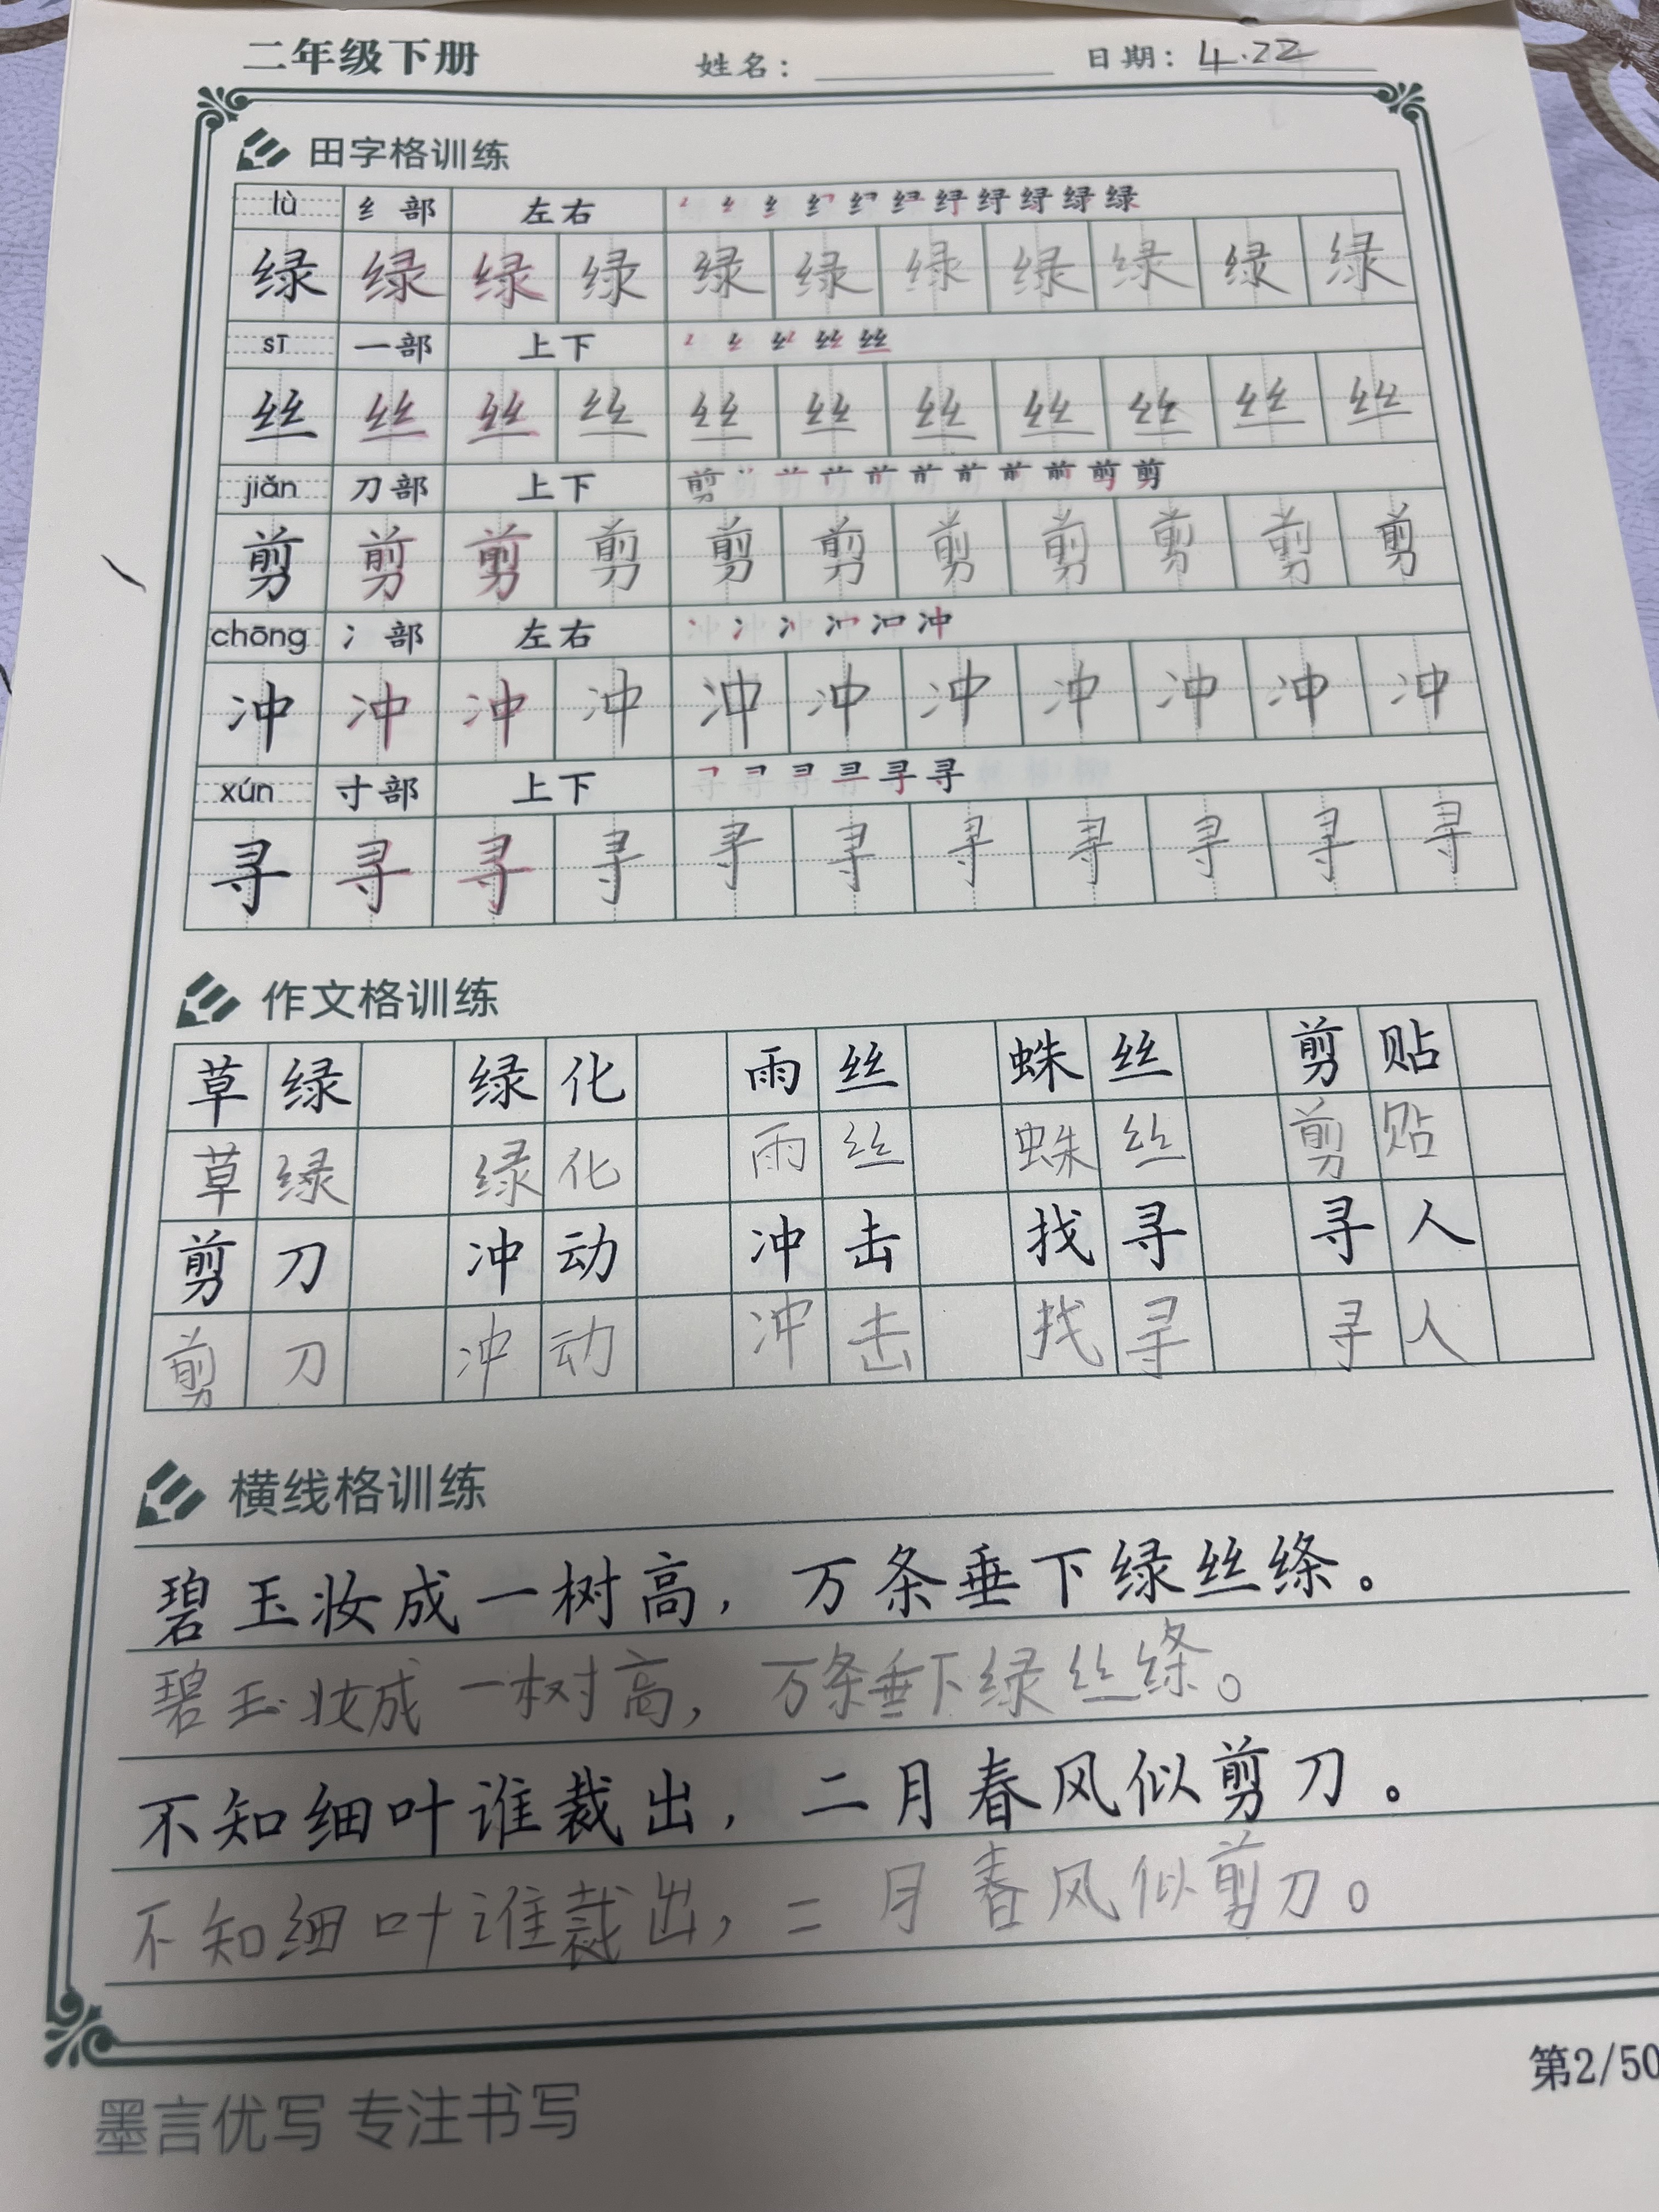 二年级下册 姓名： 日期：4.22
田字格训练
lǜ 纟部 左右 绿
绿 绿 绿 绿 绿 绿 绿 绿 绿 绿 绿
sī 一部 上下 丝
丝 丝 丝 丝 丝 丝 丝 丝 丝 丝 丝
jiǎn 刀部 上下 剪
剪 剪 剪 剪 剪 剪 剪 剪 剪 剪 剪
chōng 冫部 左右 冲
冲 冲 冲 冲 冲 冲 冲 冲 冲 冲 冲
xún 寸部 上下 寻
寻 寻 寻 寻 寻 寻 寻 寻 寻 寻 寻
作文格训练
草绿 绿化 雨丝 蛛丝 剪贴
草绿 绿化 雨丝 蛛丝 剪贴
剪刀 冲动 冲击 找寻 寻人
剪刀 冲动 冲击 找寻 寻人
横线格训练
碧玉妆成一树高，万条垂下绿丝绦。
碧玉妆成一树高，万条垂下绿丝绦。
不知细叶谁裁出，二月春风似剪刀。
不知细叶谁裁出，二月春风似剪刀。
第2/50
墨言优写 专注书写